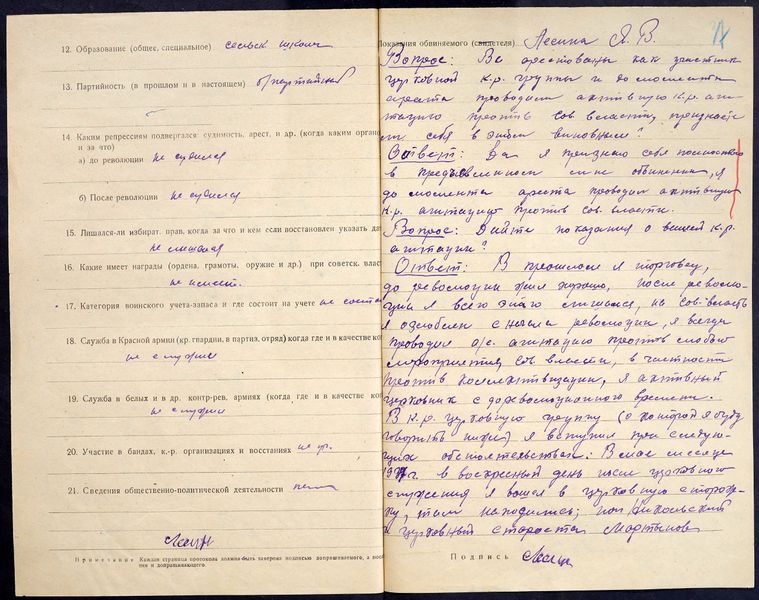 12. Образование (общее, специальное) сельск школа
13. Партийность (в прошлом и в настоящем) б/партийный
14. Каким репрессиям подвергался: судимость, арест, и др. (когда каким орган
и за что)
а) до революции не судился
б) После революции не судился
15. Лишался-ли избират. прав, когда за что и кем если восстановлен указать да
не лишался
16. Какие имеет награды (ордена, грамоты, оружие и др.) при советск. влас
не имеет.
17. Категория воинского учета-запаса и где состоит на учете не состоит
18. Служба в Красной армии (кр. гвардии, в партиз. отряд) когда где и в качестве ко
не служил
19. Служба в белых и в др. контр-рев. армиях (когда где и в качестве ко
не служил
20. Участие в бандах, к.-р. организациях и восстаниях не уч.
21. Сведения общественно-политической деятельности нет
Лесин
Примечание Каждая страница протокола должна быть заверена подписью допрашиваемого, а посл
ния и допрашивающего.
Показания обвиняемого (свидетеля) Лесина Я. В.
Вопрос: Вы арестованы как участник
церковной к.р. группы и до момента
ареста проводили активную к.р. аги-
тацию против сов власти, признаете
ли себя в этом виновным?
Ответ: Да я признаю себя полностью
в пред'явленном мне обвинении, я
до момента ареста проводил активную
к.р. агитацию против сов. власти.
Вопрос: Дайте показания о вашей к.р.
агитации?
Ответ: В прошлом я торговец,
до революции жил хорошо, после револю-
ции я всего этого лишился, на сов-власть
я озлоблен с начала революции, я всегда
проводил а/с. агитацию против любой
мероприятия, сов. власти, в частности
против коллективизации, я активный
церковник с дореволюционного времени.
В к.р. церковную группу (о которой я буду
говорить ниже) я вступил при следую-
щих обстоятельствах: В мае месяце
1937г. в воскресный день после церковного
служения я вошел в церковную сторож-
ку, там находились; поп Никольский
и церковный староста Мартынов
Подпись Лесин